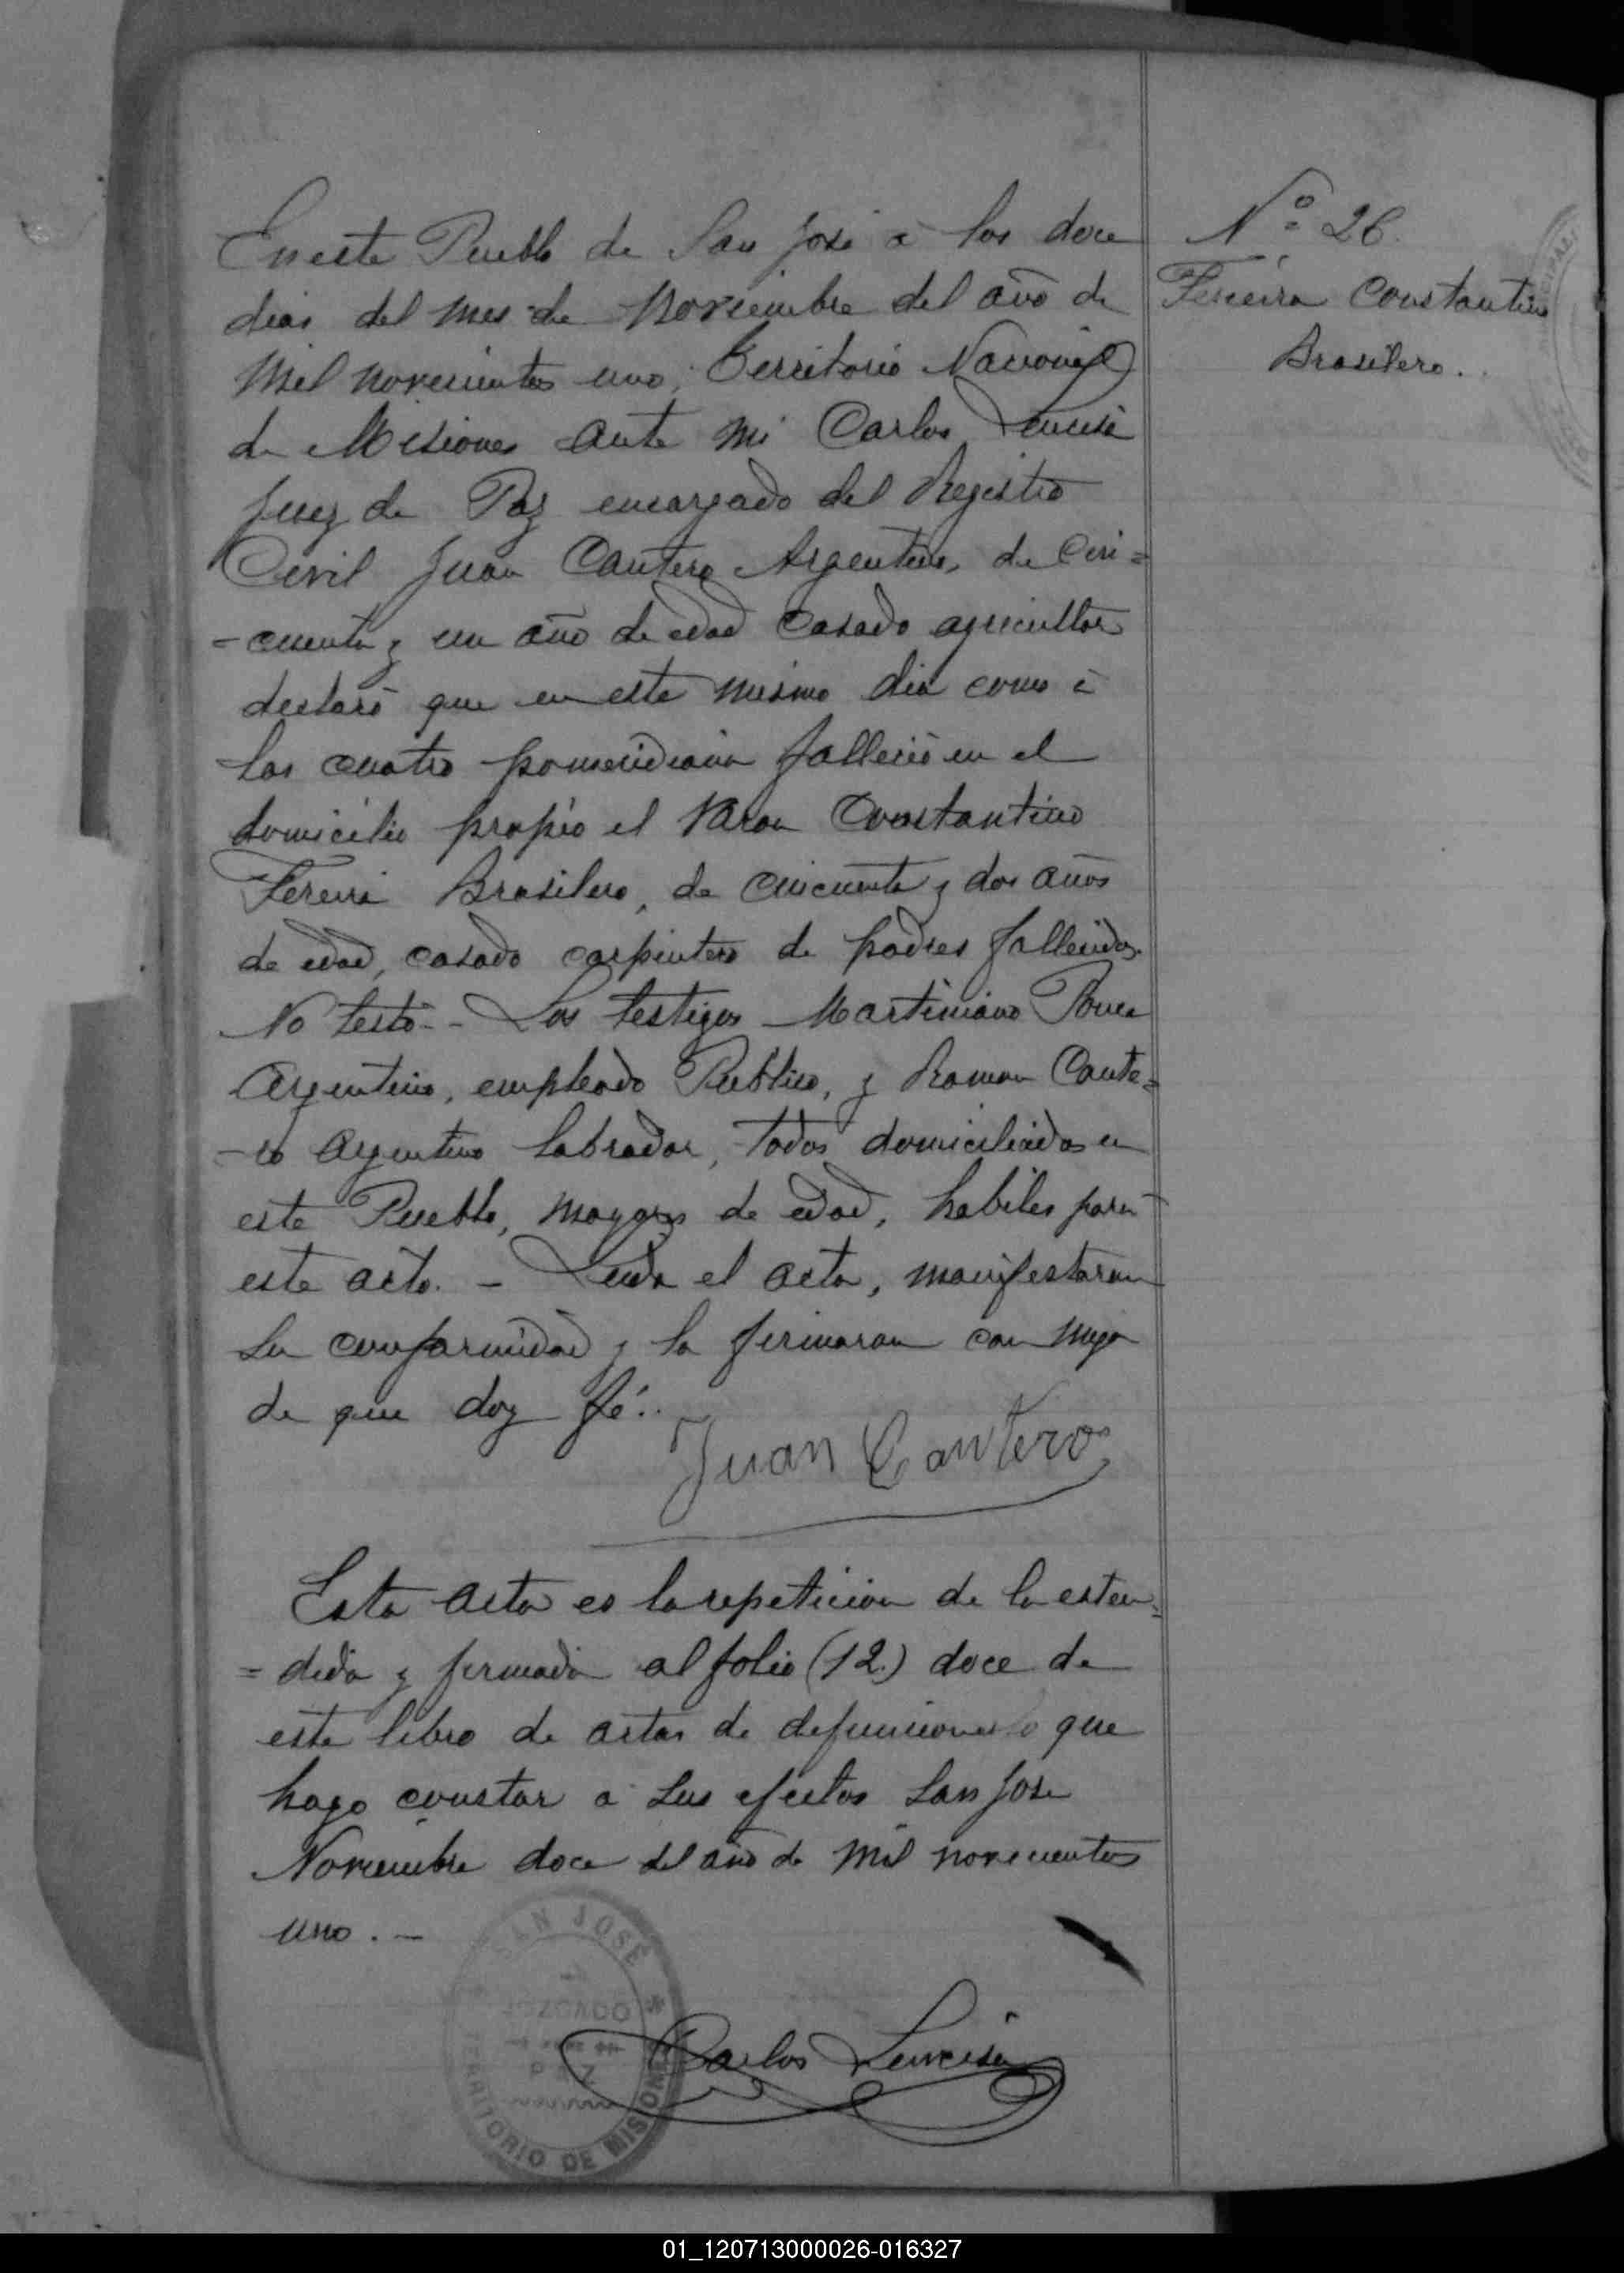 En este Pueblo de San José á los doce
dias del mes de Noviembre del año de
mil novecientos uno, Territorio Nacional
de Misiones ante mi Carlos Lencisa
Juez de Paz encargado del Registro
Civil Juan Cantero Argentino, de Cin=
-cuenta y un año de edad casado agricultor
declaró que en este mismo dia como á
las cuatro pomeridiana falleció en el
domicilio propio el Varon Constantino
Fereira Brasilero, de cincuenta y dos años
de edad, casado carpintero de padres fallecidos.
No testó.- Los testigos Martiniano Ponce
Argentino, empleado Publico, y Ramon Cante=
-ro Argentino labrador, todos domiciliados en
este Pueblo, mayores de edad, habiles para
este acto. - Leida el acta, manifestaron
su conformidad y la firmaron con migo
de que doy fé..
Juan Cantero
Esta acta es la repeticion de la esten=
=dida y firmada al folio (12.) doce de
este libro de actas de defunciones lo que
hago constar a sus efectos San José
Noviembre doce del año de mil novecientos
uno. -
SAN JOSÉ
JUZGADO
PAZ
TERRITORIO DE MISIONES
Carlos Lencisa
Nº 26.
Fereira Constantino
Brasilero.
01_120713000026-016327